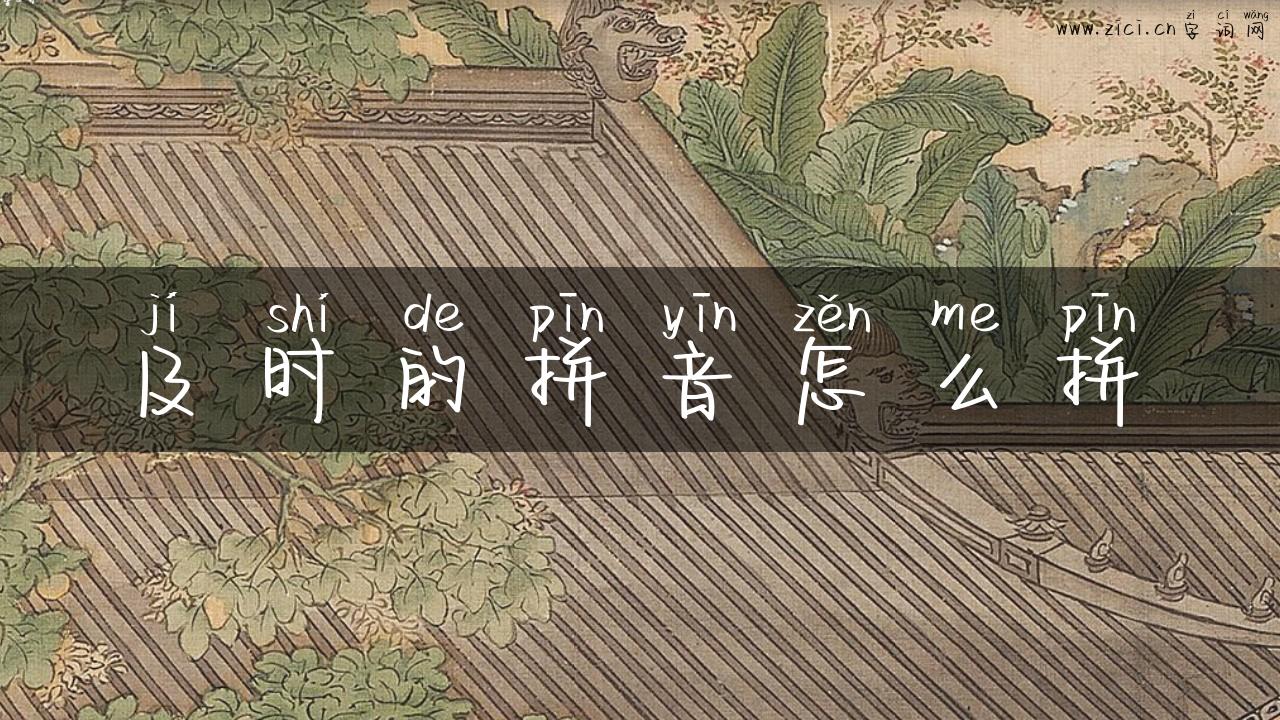 zì cí wǎng
www.zici.cn 字词网
jí shí de pīn yīn zěn me pīn
及时的拼音怎么拼